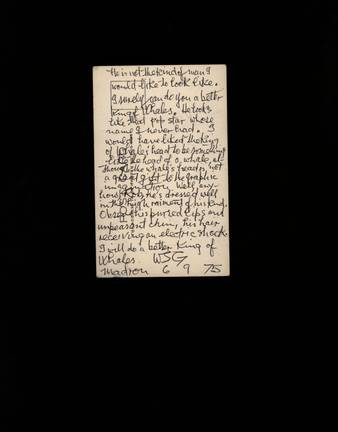 He is not the kind of man I
would like to look like.
I surely can do you a better
King of Whales. He looks
like that pop star whose
name I never had. I
would have liked the King
of Whales head to be something
like the head of a whale, al-
though the whale's head is not
a great gift to the graphic
imagination. Well any-
how, he's dressed well
in the high raiment of his kind.
Observe his pursed lips and
unpleasant chin, his hair
receiving an electric shock.
I will do a better King of
Whales WSG
Madron 6 9 75